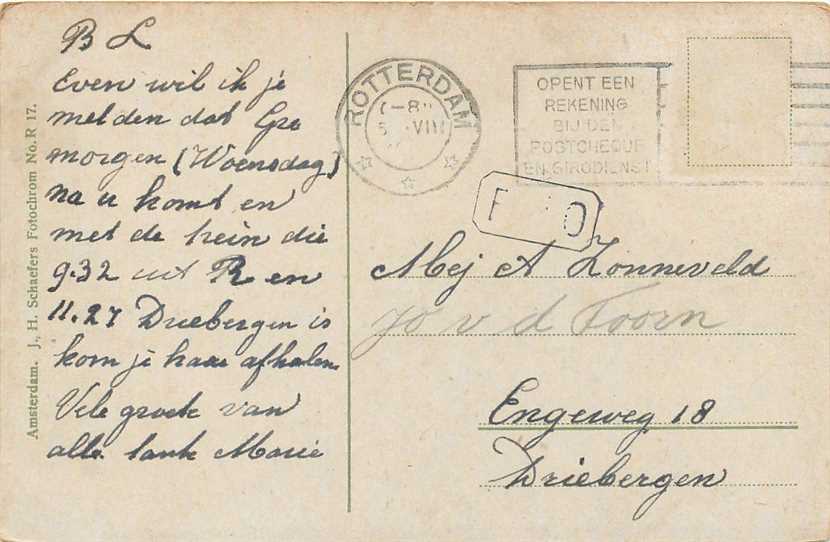 B L
Even wil ik je
melden dat Gre
morgen (Woensdag)
na u komt en
met de trein die
9.32 uit R en
11.27 Driebergen is
kom je haar afhalen
Vele groete van
alle tante Marie
Amsterdam. J. H. Schaefers Fotochrom No. R 17.
ROTTERDAM
-8
5 VIII
OPENT EEN
REKENING
BIJ DEN
POSTCHEQUE
EN GIRODIENST
Mej A Zonneveld
Jo v d Toorn
Engeweg 18
Driebergen